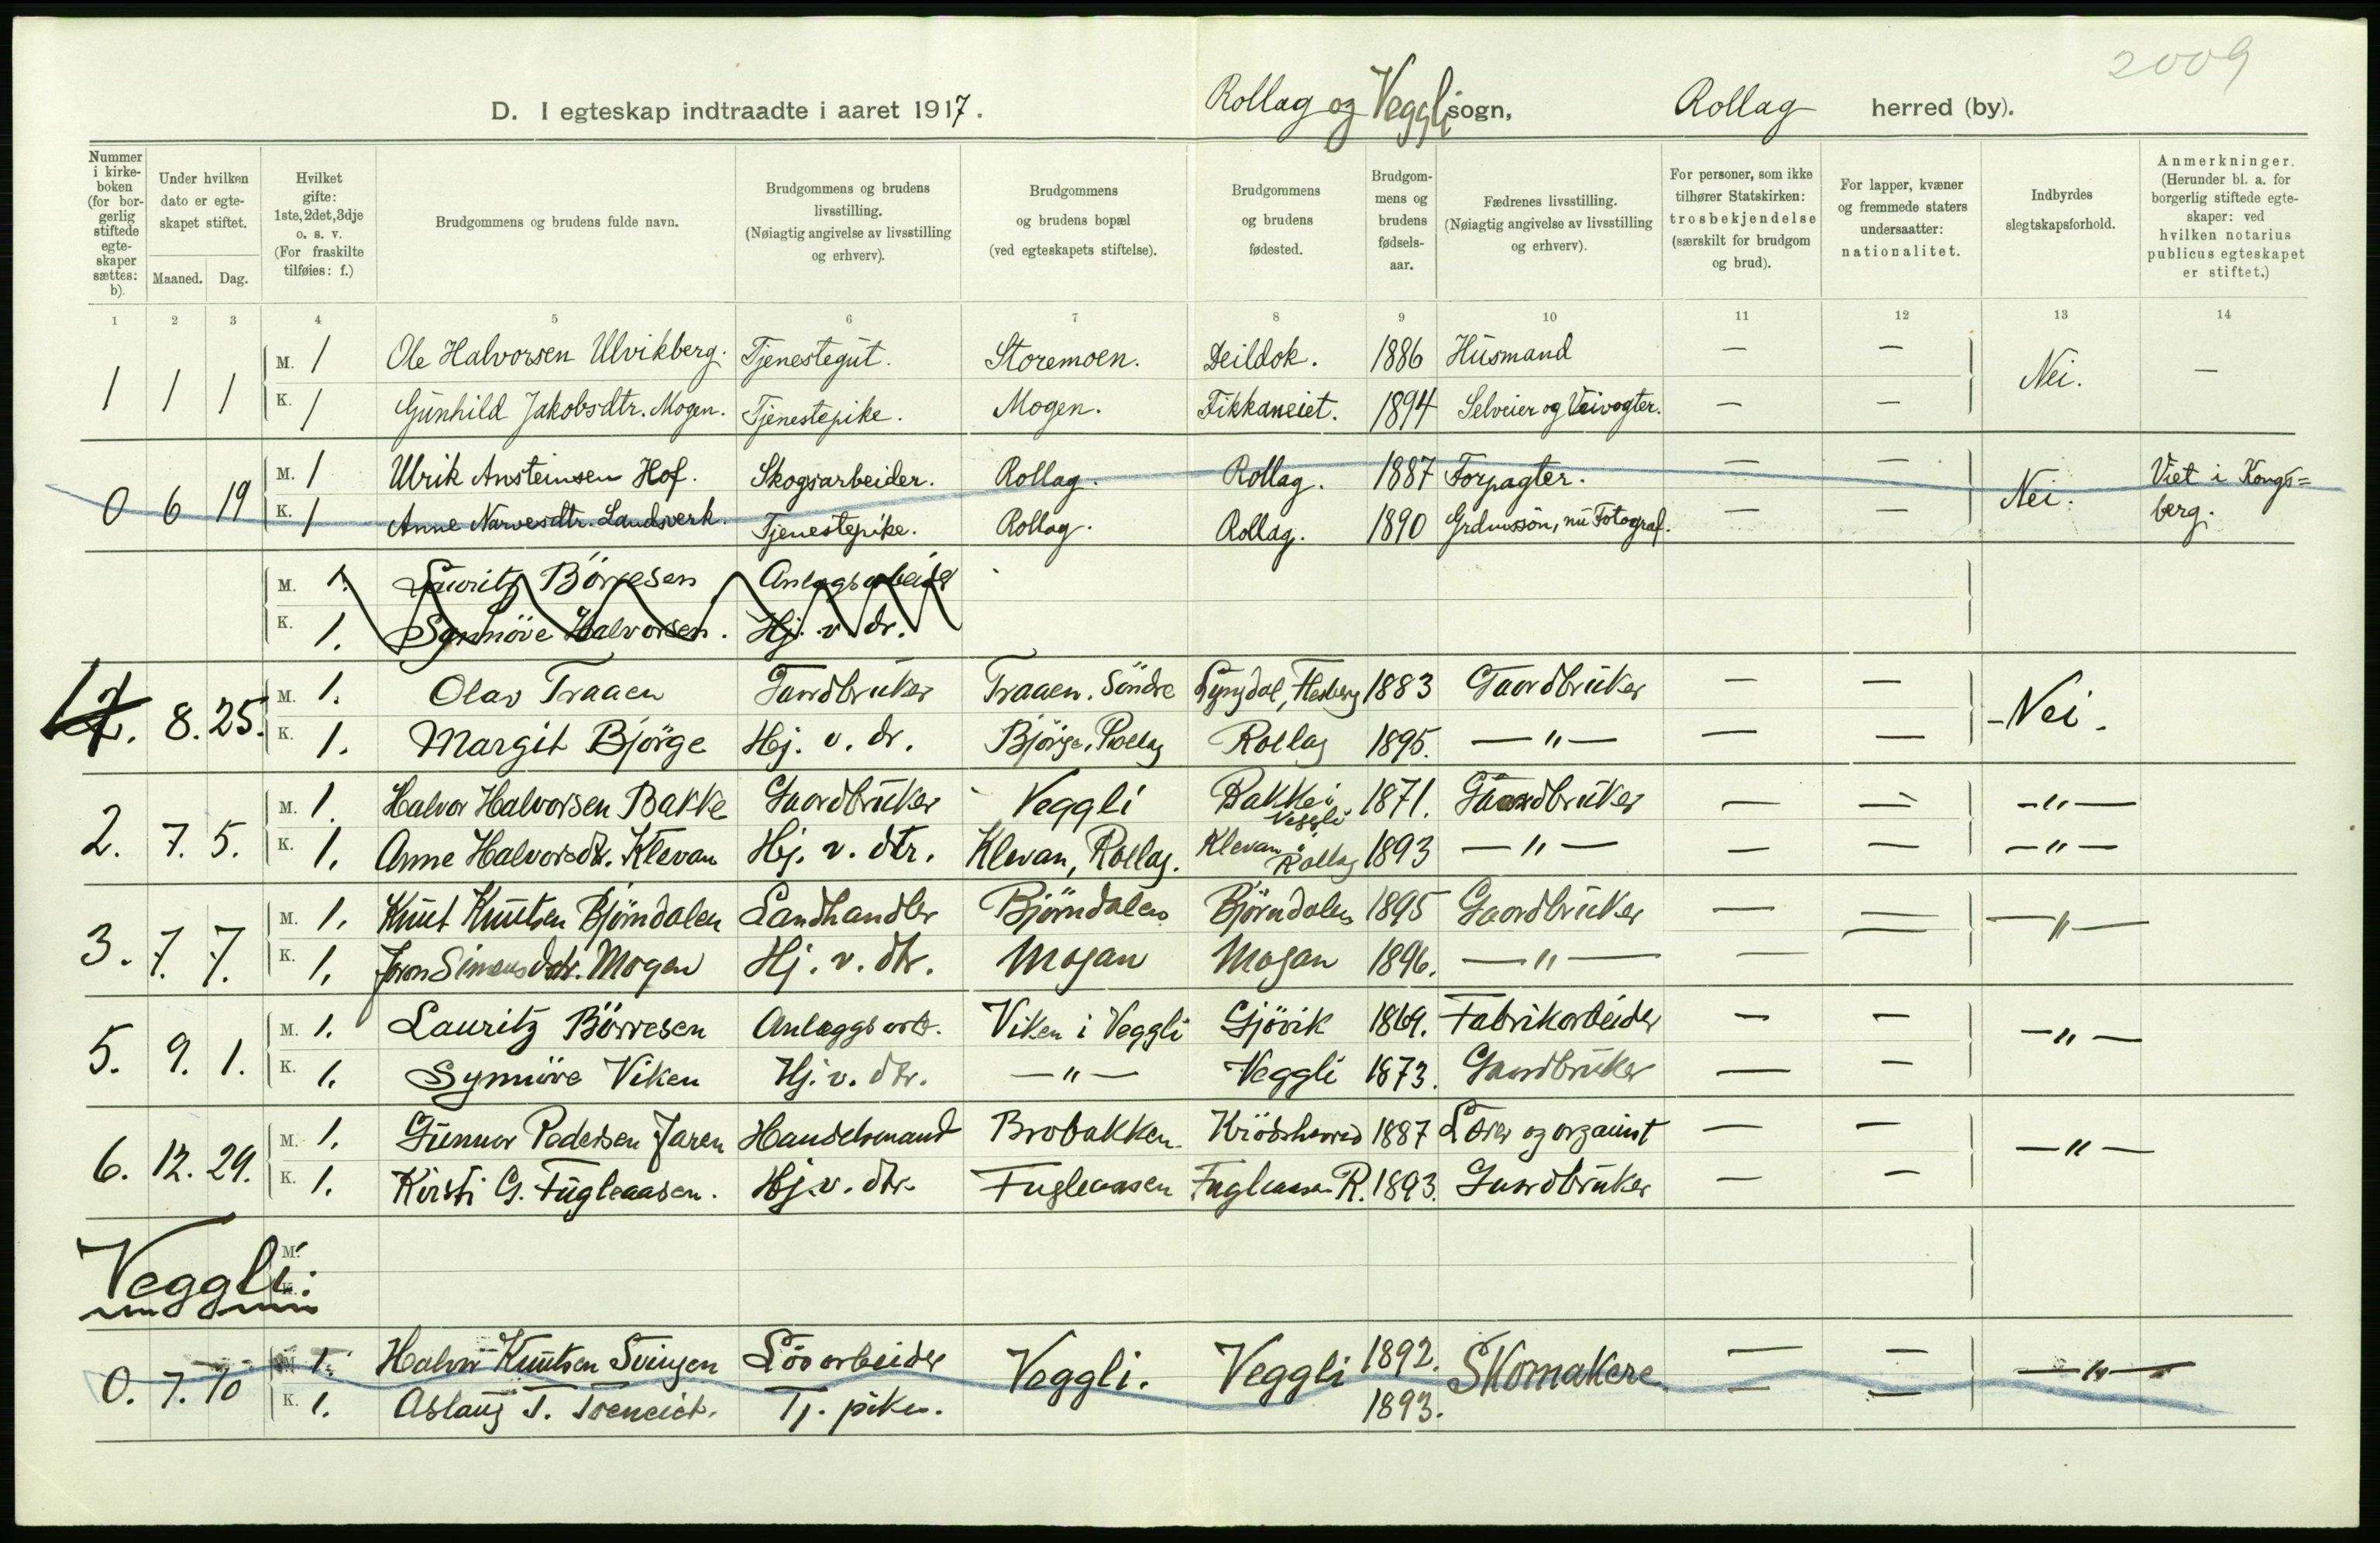 2009
D. I egteskap indtraadte i aaret 1917. Rollag og Veggli sogn, Rollag herred (by).
Nummer i kirkeboken (for borgerlig stiftede egteskaper sættes: b).
Under hvilken dato er egteskapet stiftet.
Maaned. Dag.
Hvilket gifte: 1ste, 2det, 3dje o. s. v. (For fraskilte tilføies: f.)
Brudgommens og brudens fulde navn.
Brudgommens og brudens livsstilling. (Nøiagtig angivelse av livsstilling og erhverv).
Brudgommens og brudens bopæl (ved egteskapets stiftelse).
Brudgommens og brudens fødested.
Brudgommens og brudens fødselsaar.
Fædrenes livsstilling. (Nøiagtig angivelse av livsstilling og erhverv).
For personer, som ikke tilhører Statskirken: trosbekjendelse (særskilt for brudgom og brud).
For lapper, kvæner og fremmede staters undersaatter: nationalitet.
Indbyrdes slegtskapsforhold.
Anmerkninger. (Herunder bl. a. for borgerlig stiftede egteskaper: ved hvilken notarius publicus egteskapet er stiftet.)
1 2 3 4 5 6 7 8 9 10 11 12 13 14
1 1 1 M. 1 Ole Halvorsen Ulvikberg. Tjenestegut. Storemoen. Deildok. 1886 Husmand — — Nei. —
K. 1 Gunhild Jakobsdtr. Mogen. Tjenestepike. Mogen. Fikkaneiet. 1894 Selveier og Veivogter. — —
0 6 19 M. 1 Ulrik Ansteinsen Hof. Skogsarbeider. Rollag. Rollag. 1887 Forpagter. — — Nei. Viet i Kongs=
K. 1 Anne Narvesdtr. Landsverk. Tjenestepike. Rollag. Rollag. 1890 Grdmssön, nu Fotograf. — — berg.
M. 1. Lauritz Börresen Anlægsarbeider
K. 1. Synnöve Halvorsen. Hj. v. dr.
8. 25. M. 1. Olav Traaen Gaardbruker Traaen. Söndre Lyngdal, Flesberg 1883 Gaardbruker — — - Nei.
K. 1. Margit Björge Hj. v. dr. Björge, Rollag Rollag 1895. — " — — —
2. 7. 5. M. 1. Halvor Halvorsen Bakke Gaardbruker Veggli Bakke i Veggli 1871. Gaardbruker — — - " —
K. 1. Anne Halvorsdtr. Klevan Hj. v. dtr. Klevan, Rollag. Klevan i Rollag 1893 — " — — — - " —
3. 7. 7. M. 1. Knut Knutsen Björndalen Landhandler Björndalen Björndalen 1895 Gaardbruker — — — " —
K. 1. Joron Simensdatr. Mogan Hj. v. dtr. Mogan Mogan 1896. — " — — —
5. 9. 1. M. 1. Lauritz Börresen Anlæggsarb. Viken i Veggli Gjövik 1869. Fabrikarbeider — — - " —
K. 1. Synnöve Viken Hj. v. dtr. — " — Veggli 1873. Gaardbruker — —
6. 12. 29. M. 1. Gunnar Pedersen Jaren Handelsmand Brobakken Krödsherred 1887 Lærer og organist — — — " —
K. 1. Kirsti G. Fugleaasen. Hj. v. dtr. Fugleaasen Fugleaasen R. 1893. Gaardbruker — —
Veggli: M. K.
0. 7. 10 M. 1. Halvor Knutsen Svingen Lösarbeider Veggli. Veggli 1892. Skomakere — — — " —
K. 1. Aslaug T. Toeneiet. Tj. pike. 1893. — —